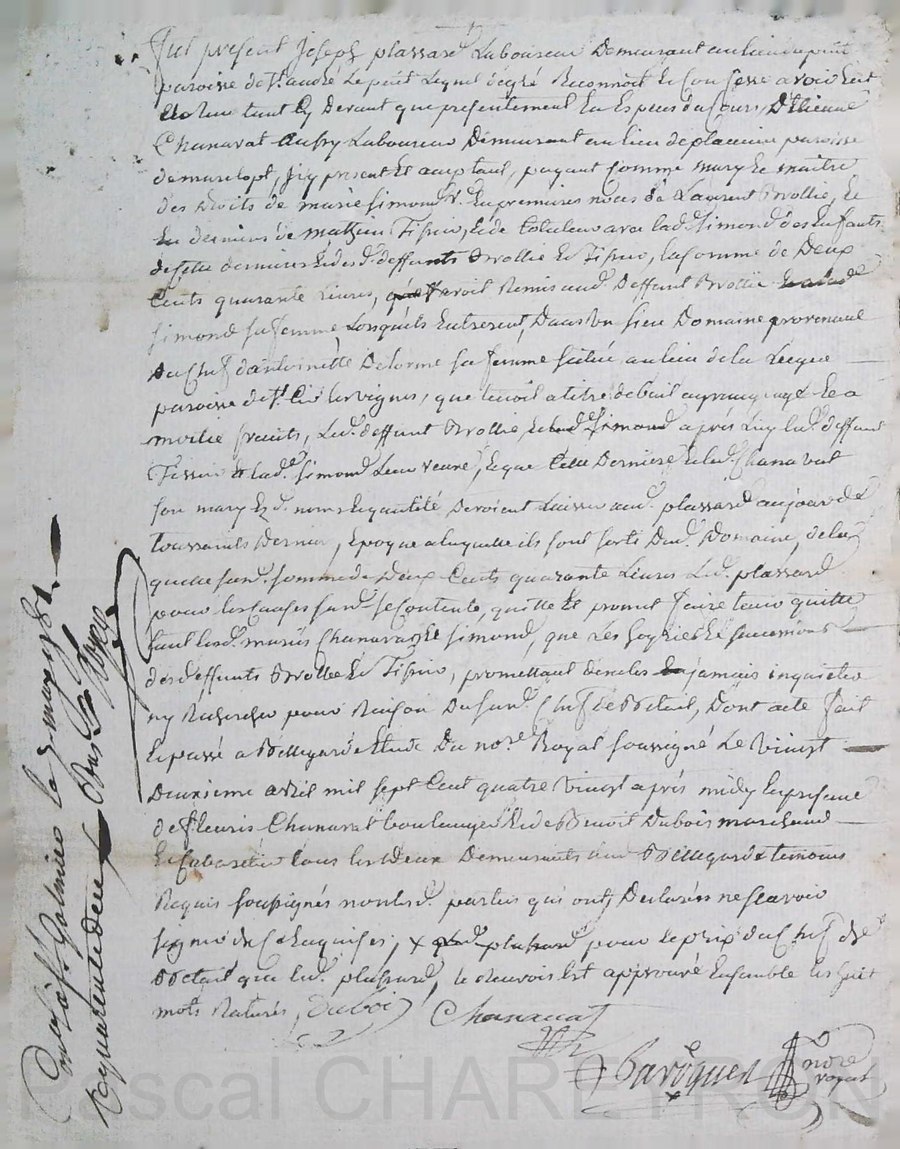 Fut présent Joseph plassard Laboureur Demeurant au lieu du puit
paroisse de St. andré Le puit Lequel de gré Reconnoit Et Confesse avoir Eut
Et Receu tant Cy Devant que présentement En Especes du Cours, D'Etienne
Chanavat Laboureur Demeurant au lieu de paroisse
de marclopt, Icy présent Et acceptant, payant Comme mary Et maître
des Droits de marie Simond Ve. En premieres noces de Laurent Brollie, Et
En dernieres de mathieu Tissier, Et de toluleur avec lad. Simond des Enfants
de Cette derniere Et desd. deffunts Brollie Et Tissier, la somme de Deux
Cents quarante Livres, avoit Remis aud. Deffunt Brollie
Simond sa femme Lorsqu'ils Entrerent, Dans Un sien Domaine provenant
Du Chef d'antoinette Delorme sa femme scitué au lieu de la
paroisse de St. Cir les vignes, que tenoit a titre de bail Et a
moitié fruits, Led. deffunt Brollie, Simond après Luy led. deffunt
Tissier Et lad. Simond Leur veuve, Et que Cette Derniere Et led. Chanavat
son mary Ezd. noms Et qualité Devoient Laisser aud. plassard au jour de
toussaints Dernier, Epoque a laquelle ils sont sorti Dud. Domaine, de la
quelle susd. somme de Deux Cents quarante Livres Led. plassard
pour les Causes susd. se Contente, quitte Et promet faire tenir quitte
tant lesd. mariés Chanavat Et Simond, que Les hoyries Et successions
desd. deffunts Brollie Et Tissier, promettant de ne les jamais inquieter
ny Rechercher pour Raison Du susd. Chef de Betail, Dont acte fait
Et passé a Bellegarde Etude Du nore. Royal soussigné Le Vingt
Deuxieme avril mil sept Cent quatre Vingt après midy En présence
de fleuris Chanavat boulanger Et de Benoit Dubois marchand
Et Cabaretier tous les Deux Demeurants aud. Bellegarde temoins
Requis soussignés non lesd. parties qui ont Declarés ne sçavoir
signer de Ce Enquises; x plassard pour le prix du Chef de
Betail que led. plassard, le Renvois Est approuvé Ensemble les huit
mots Raturés, Dubois Chanavat
Baroquer nore
royal
Conlé a St Galmier le 3 may 1781.
Reçu quarente deux
Pascal CHAREYRON